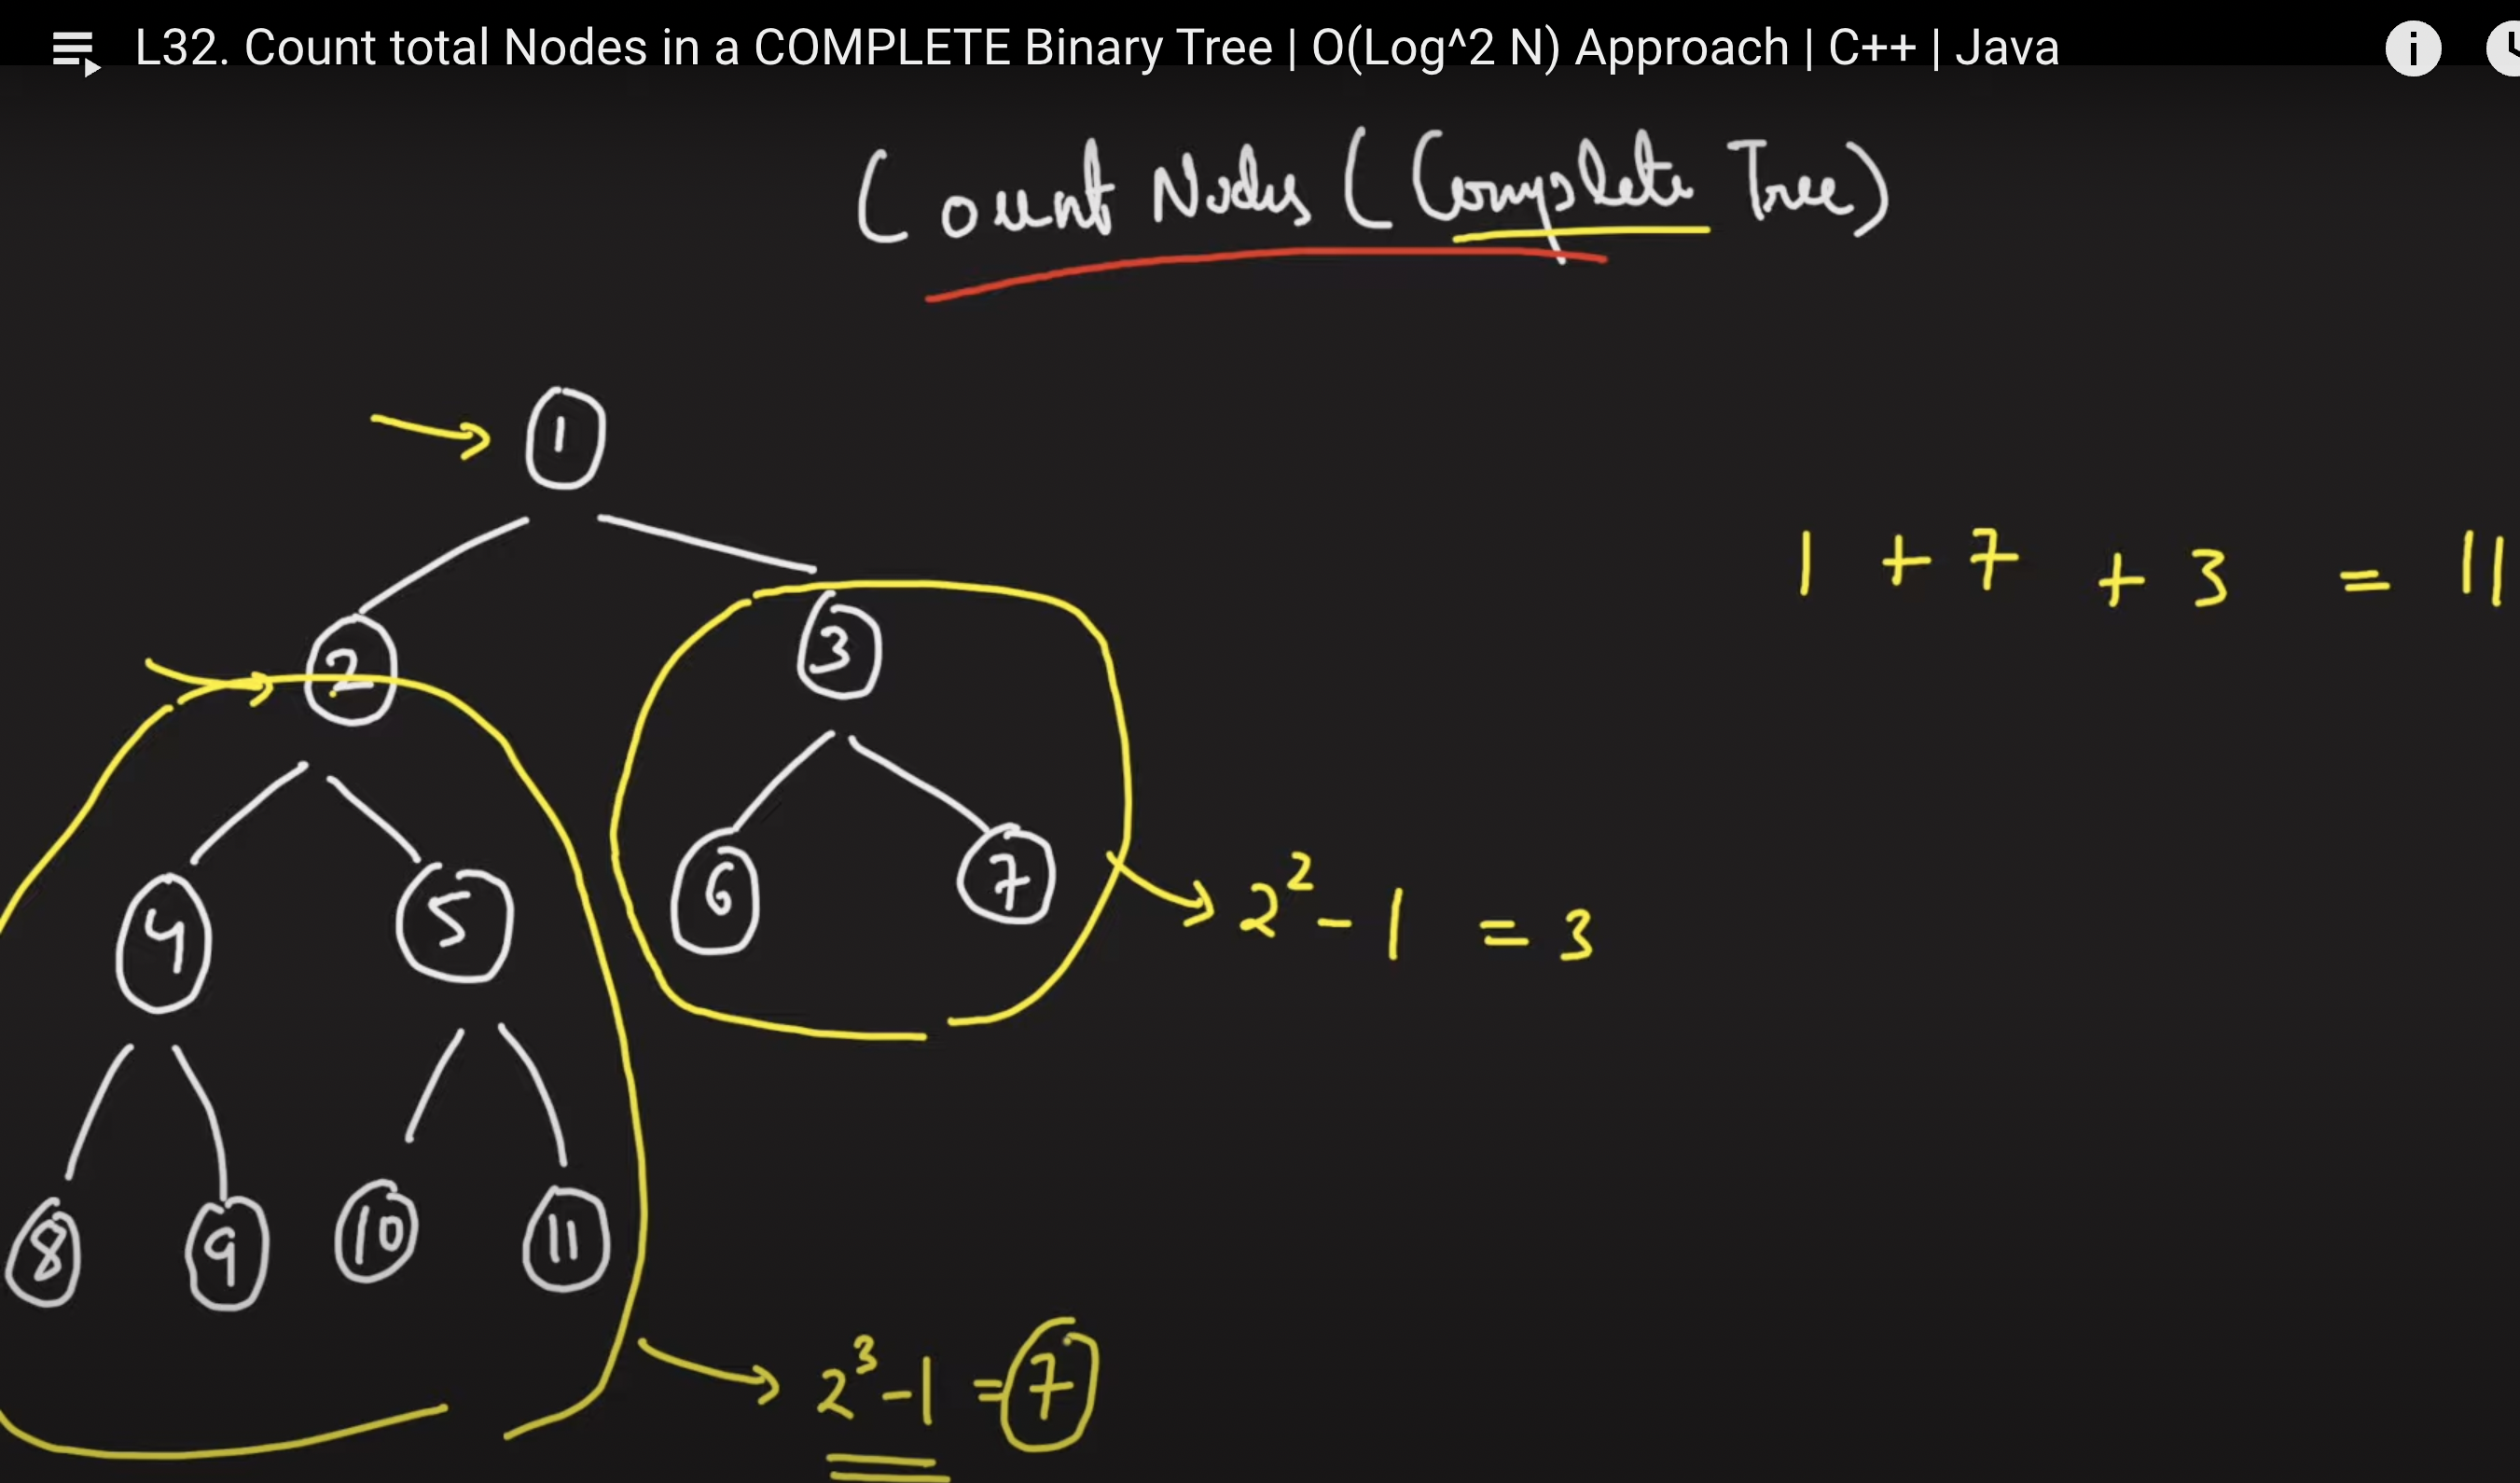 L32. Count total Nodes in a COMPLETE Binary Tree | O(Log^2 N) Approach | C++ | Java
Count Nodes (Complete Tree)
1
1 + 7 + 3 = 11
2
3
4
5
6
7
2² - 1 = 3
8
9
10
11
2³ - 1 = 7